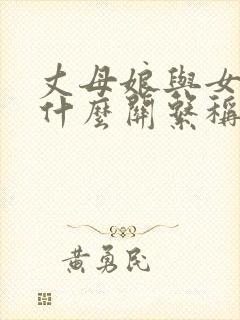 丈母娘與女
什麼關繫稱
黃勇民